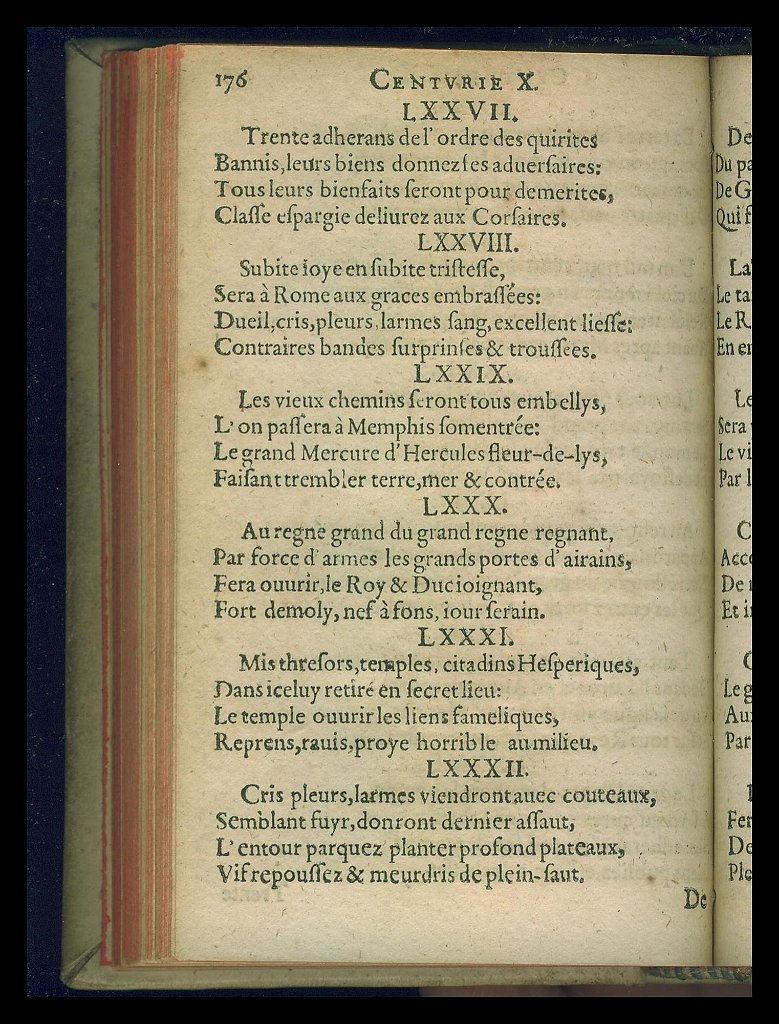 176 CENTVRIE X.
LXXVII.
Trente adherans de l'ordre des quirites
Bannis, leurs biens donnez ſes aduerſaires:
Tous leurs bienfaits ſeront pour demerites,
Claſſe eſpargie deliurez aux Corſaires.
LXXVIII.
Subite ioye en ſubite triſteſſe,
Sera à Rome aux graces embraſſées:
Dueil, cris, pleurs, larmes ſang, excellent lieſſe:
Contraires bandes ſurprinſes & trouſſées.
LXXIX.
Les vieux chemins ſeront tous embellys,
L'on paſſera à Memphis ſomentrée:
Le grand Mercure d'Hercules fleur-de-lys,
Faiſant trembler terre, mer & contrée.
LXXX.
Au regne grand du grand regne regnant,
Par force d'armes les grands portes d'airains,
Fera ouurir, le Roy & Duc ioignant,
Fort demoly, nef à fons, iour ſerain.
LXXXI.
Mis threſors, temples, citadins Heſperiques,
Dans iceluy retiré en ſecret lieu:
Le temple ouurir les liens fameliques,
Reprens, rauis, proye horrible au milieu.
LXXXII.
Cris pleurs, larmes viendront auec couteaux,
Semblant fuyr, donront dernier aſſaut,
L'entour parquez planter profond plateaux,
Vif repouſſez & meurdris de plein-ſaut.
De
De
Du pa
De G
Qui f
La
Le ta
Le R
En en
Le
Sera
Le vi
Par l
C
Acco
De
Et i
Le g
Au
Par
Fer
De
Ple